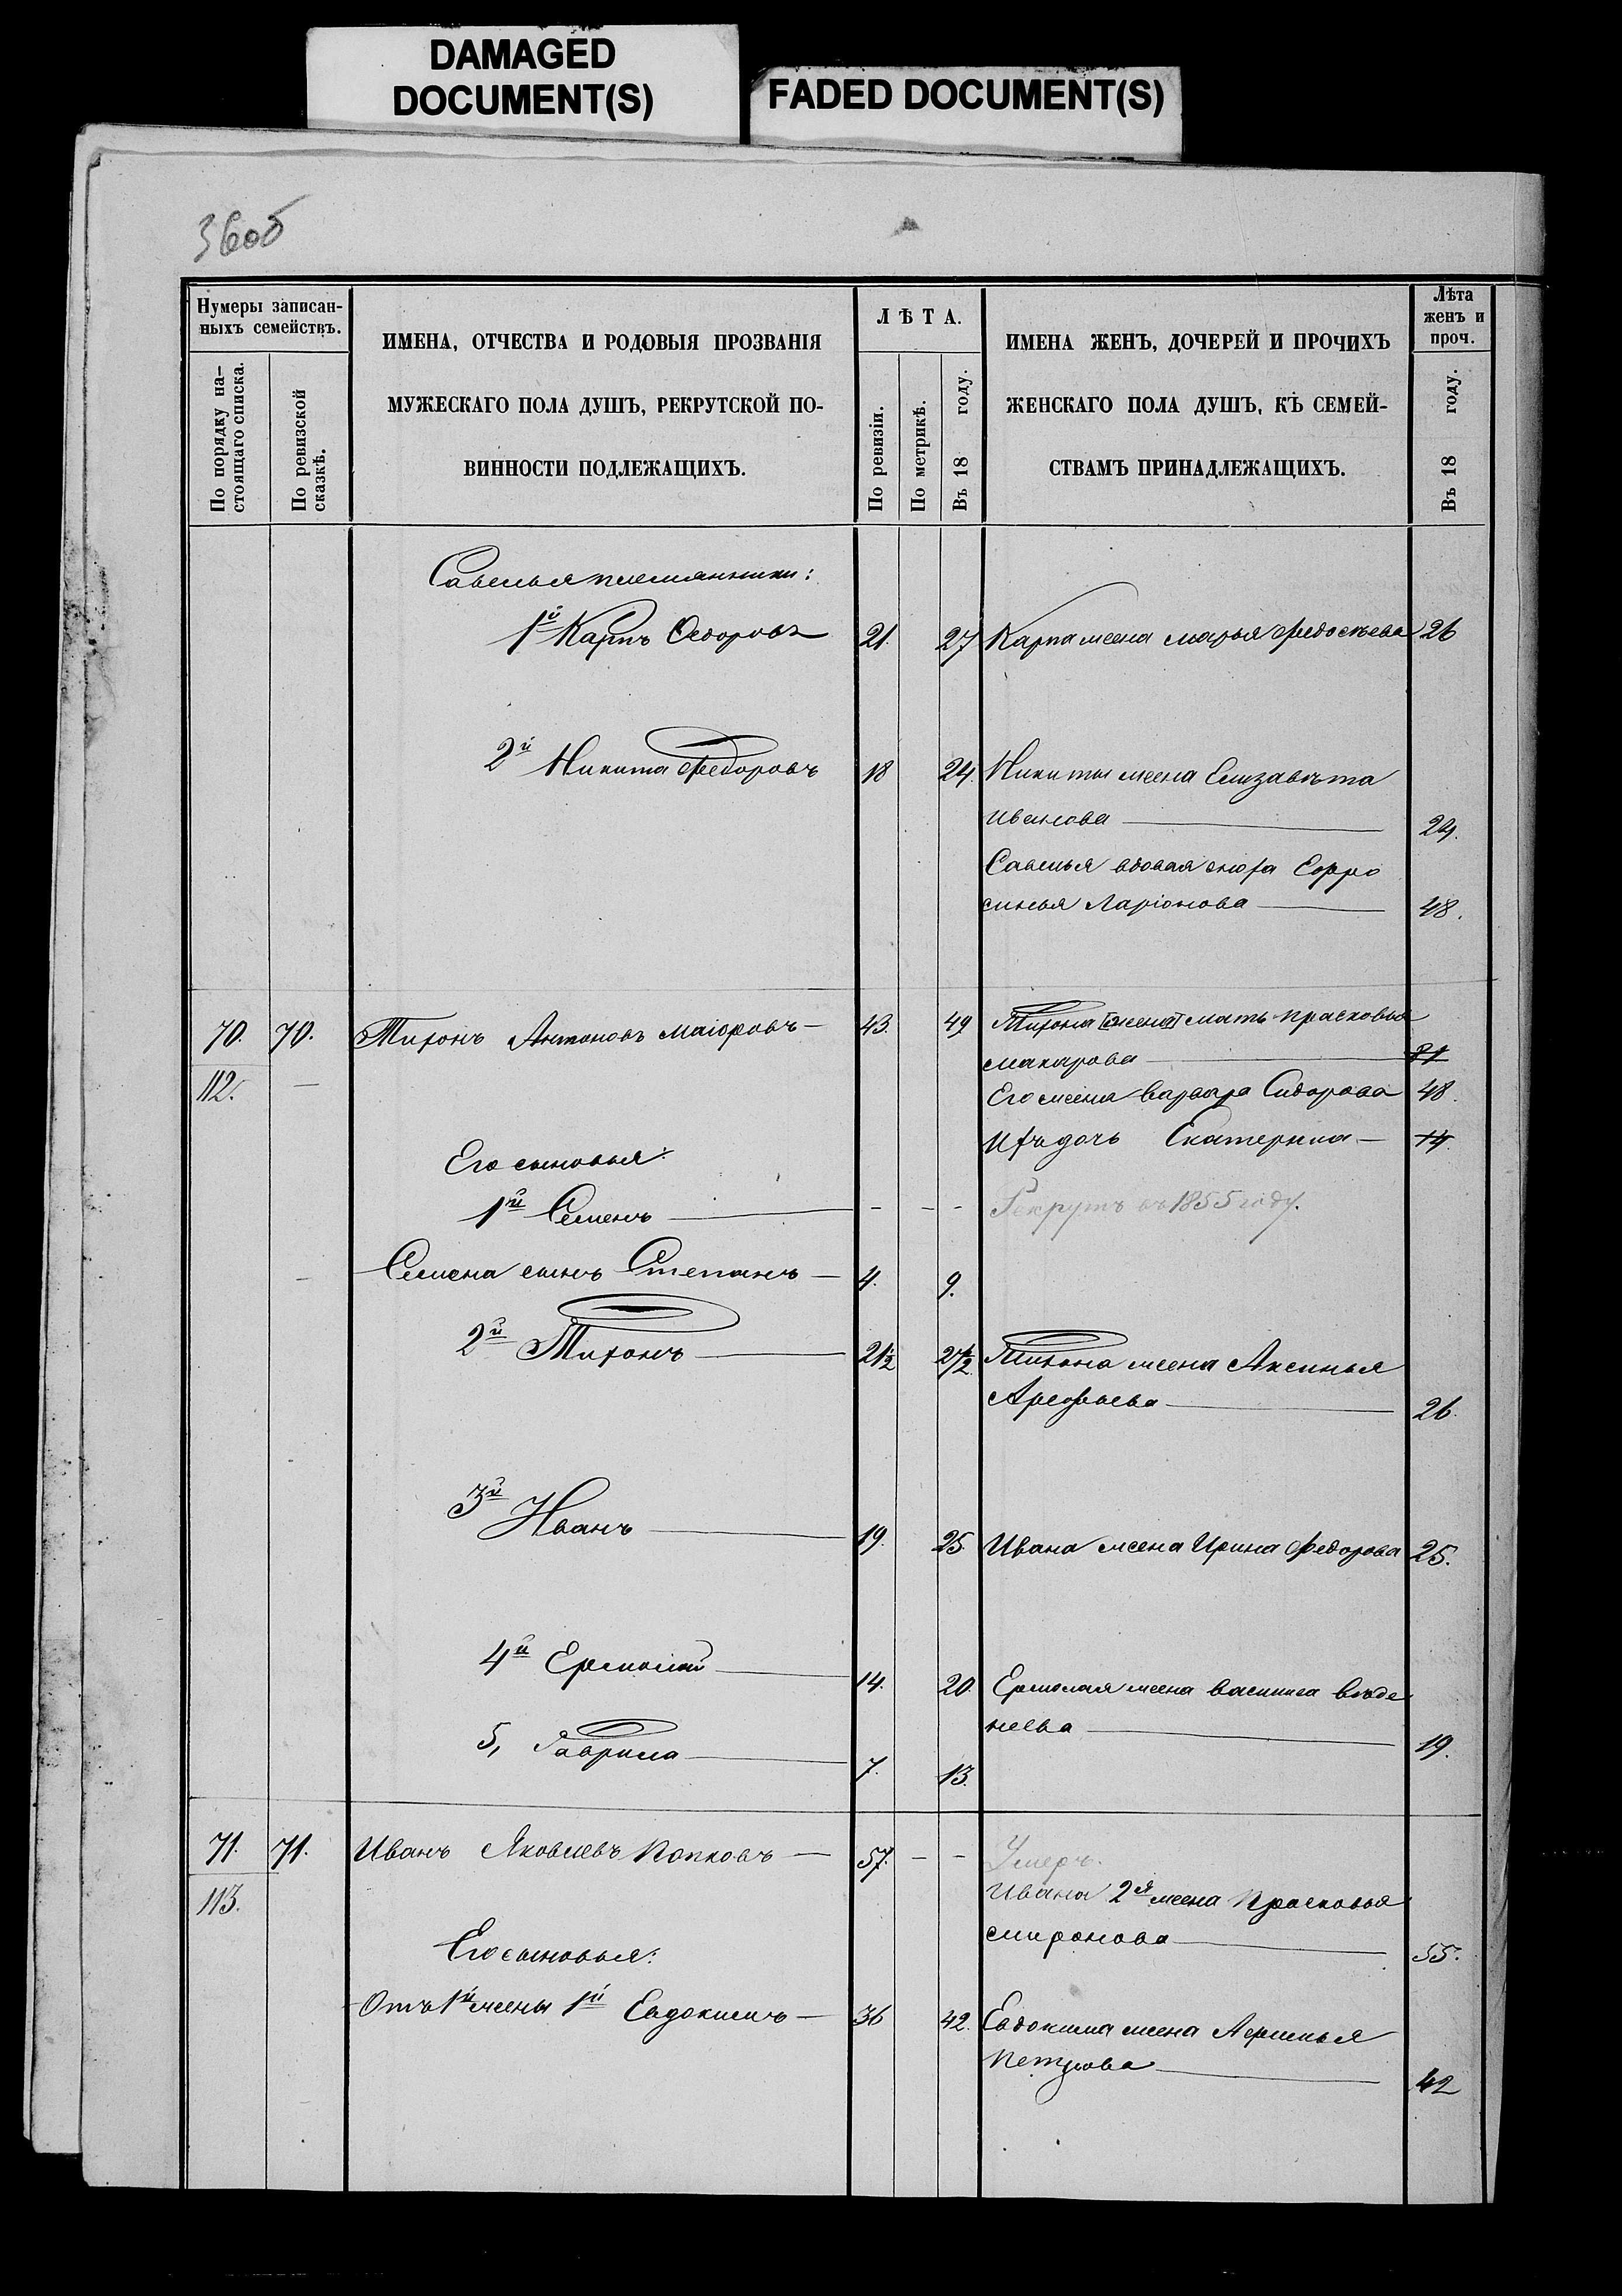 DAMAGED
DOCUMENT(S)
FADED DOCUMENT(S)
36об
Нумеры записан-
ныхъ семействъ.
По порядку на-
стоящаго списка.
По ревизской
сказкѣ.
ИМЕНА, ОТЧЕСТВА И РОДОВЫЯ ПРОЗВАНІЯ
МУЖЕСКАГО ПОЛА ДУШЪ, РЕКРУТСКОЙ ПО-
ВИННОСТИ ПОДЛЕЖАЩИХЪ.
ЛѢТА.
По ревизіи.
По метрикѣ.
Въ 18 году.
ИМЕНА ЖЕНЪ, ДОЧЕРЕЙ И ПРОЧИХЪ
ЖЕНСКАГО ПОЛА ДУШЪ, КЪ СЕМЕЙ-
СТВАМЪ ПРИНАДЛЕЖАЩИХЪ.
Лѣта
женъ и
проч.
Въ 18 году.
Савелья племянники:
1й Карпъ Ѳедоровъ 21. 27 Карпа жена Марья Федосѣева 26
2й Никита Федоровъ 18 24. Никиты жена Елизавѣта
Иванова 24.
Савелья вдовая сноха Ефро
синья Ларіонова 48.
70. 70. Тихонъ Антоновъ Маіоровъ 43. 49 Тихона [жена] мать Прасковья
Макарова 81
112. Его жена Варвара Сидорова 48.
Ихъ дочь Екатерина 14.
Его сыновья:
1й Семенъ - - - Рекрутъ въ 1855 году.
Семена сынъ Степанъ 4. 9.
2й Тихонъ 21½ 27½ Тихона жена Аксинья
Арефьева 26.
3й Иванъ 19. 25. Ивана жена Ирина Федорова 25.
4й Ермолай 14. 20. Ермолая жена Василиса Вѣде
неева 19.
5, Гаврила 7. 13.
71. 71. Иванъ Яковлевъ Попковъ 57. - - Умеръ.
113. Ивана 2я жена Прасковья
Миронова 55.
Его сыновья:
Отъ 1й жены 1й Евдокимъ 36 42. Евдокима жена Афимья
Петрова 42